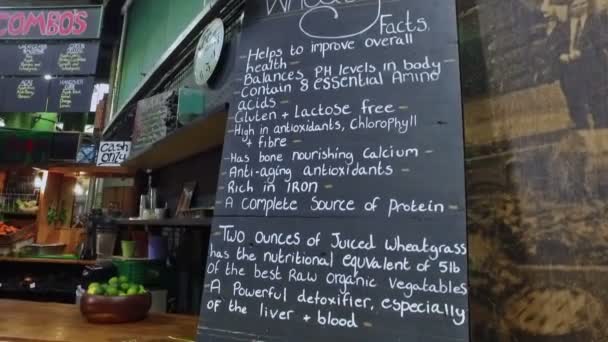 COMBO'S
Cash
only
Facts
- Helps to improve overall
health -
Balances PH levels in body -
Contain 8 essential Amino
acids -
Gluten + Lactose free -
- High in antioxidants, Chlorophyll
+ fibre -
- Has bone nourishing Calcium -
- Anti-aging antioxidants -
Rich in IRON -
- A complete Source of Protein -
Two ounces of Juiced Wheatgrass
has the nutritional equivalent of 5lb
of the best Raw organic vegatables
- A Powerful detoxifier, especially
of the liver + blood -